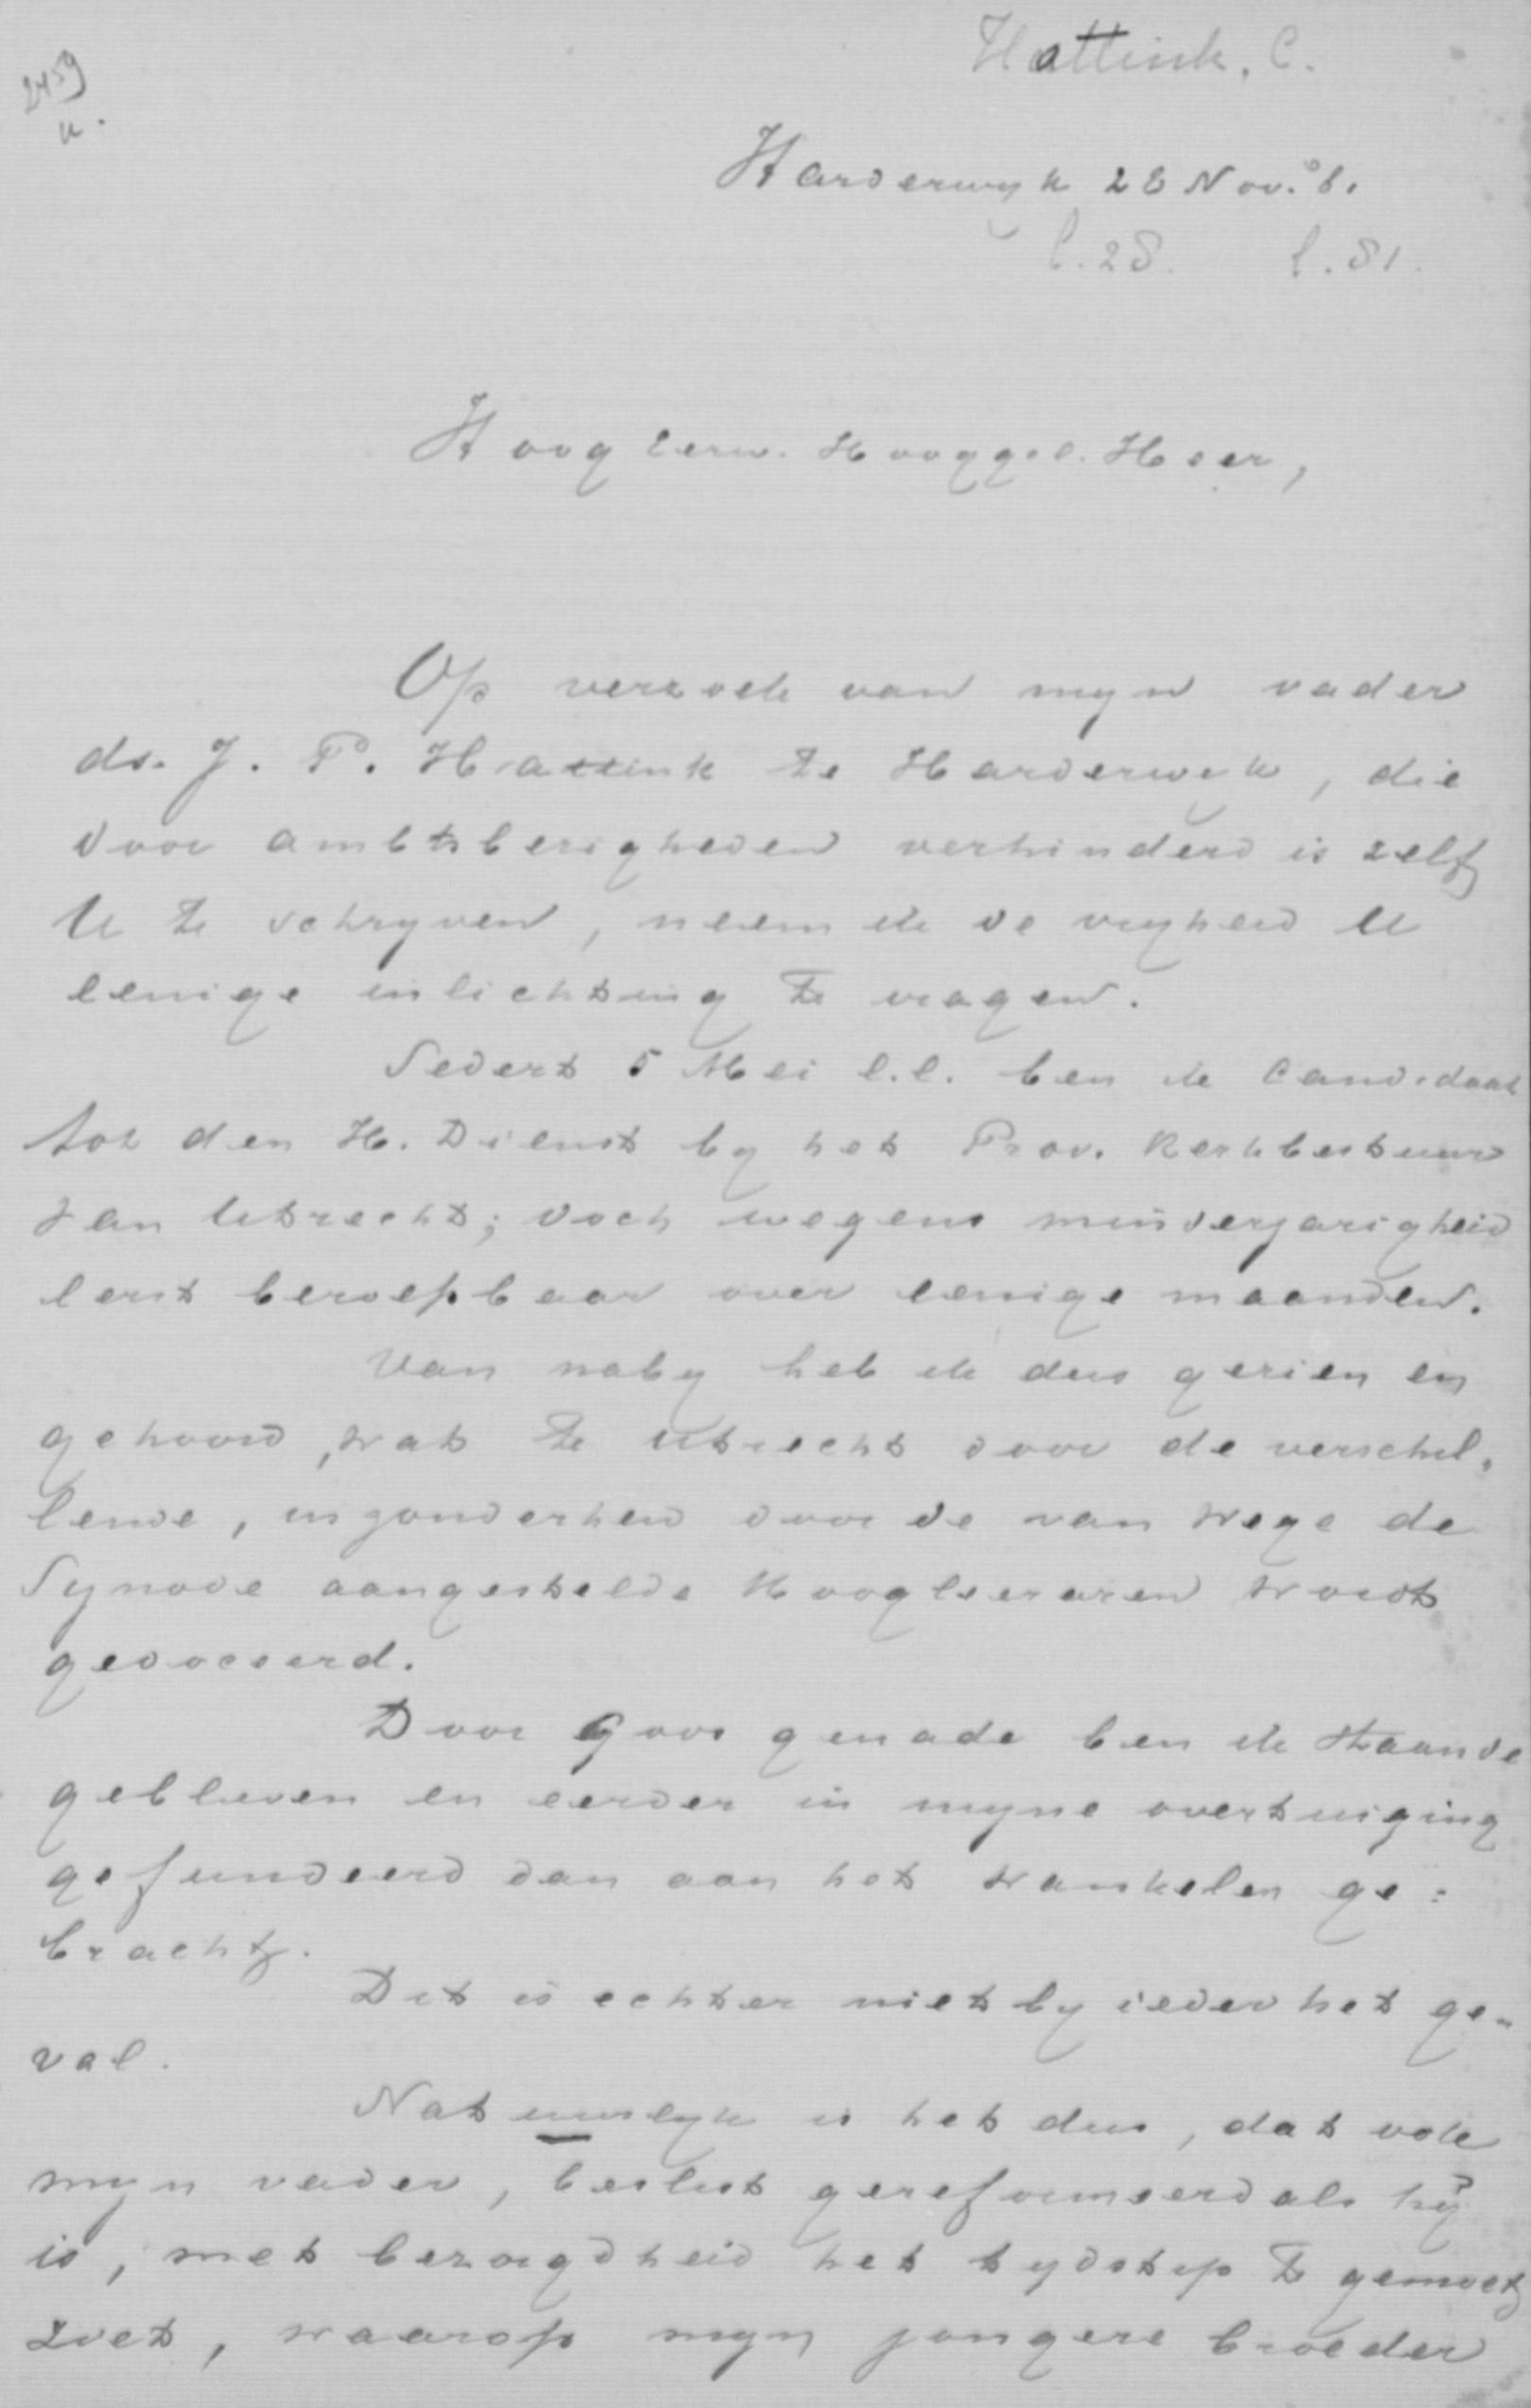 Hattink, C.
2459
u.
Harderwyk 28 Nov. '81
C. 28. C. 81.
Hoog Eerw. Hooggel. Heer,
Op verzoek van myn vader
ds. J. P. Hattink te Harderwijk, die
door ambtsbezigheden verhinderd is zelf
U te schryven, neem ik de vryheid U
eenige inlichting te vragen.
Sedert 5 Mei l.l. ben ik Candidaat
tot den H. Dienst by het Prov. Kerkbestuur
van Utrecht; doch wegens minderjarigheid
eerst beroepbaar over eenige maanden.
Van naby heb ik dus gezien en
gehoord, wat te Utrecht door de verschil-
lende, inzonderheid door de van wege de
Synode aangestelde Hoogleeraren wordt
gedoceerd.
Door Gods genade ben ik staande
gebleven en eerder in myne overtuiging
gefundeerd dan aan het wankelen ge=
bracht.
Dit is echter niet by ieder het ge-
val.
Natuurlyk is het dus, dat ook
myn vader, beslist gereformeerd als hij
is, met bezorgdheid het tydstip te gemoet
ziet, waarop myn jongere broeder